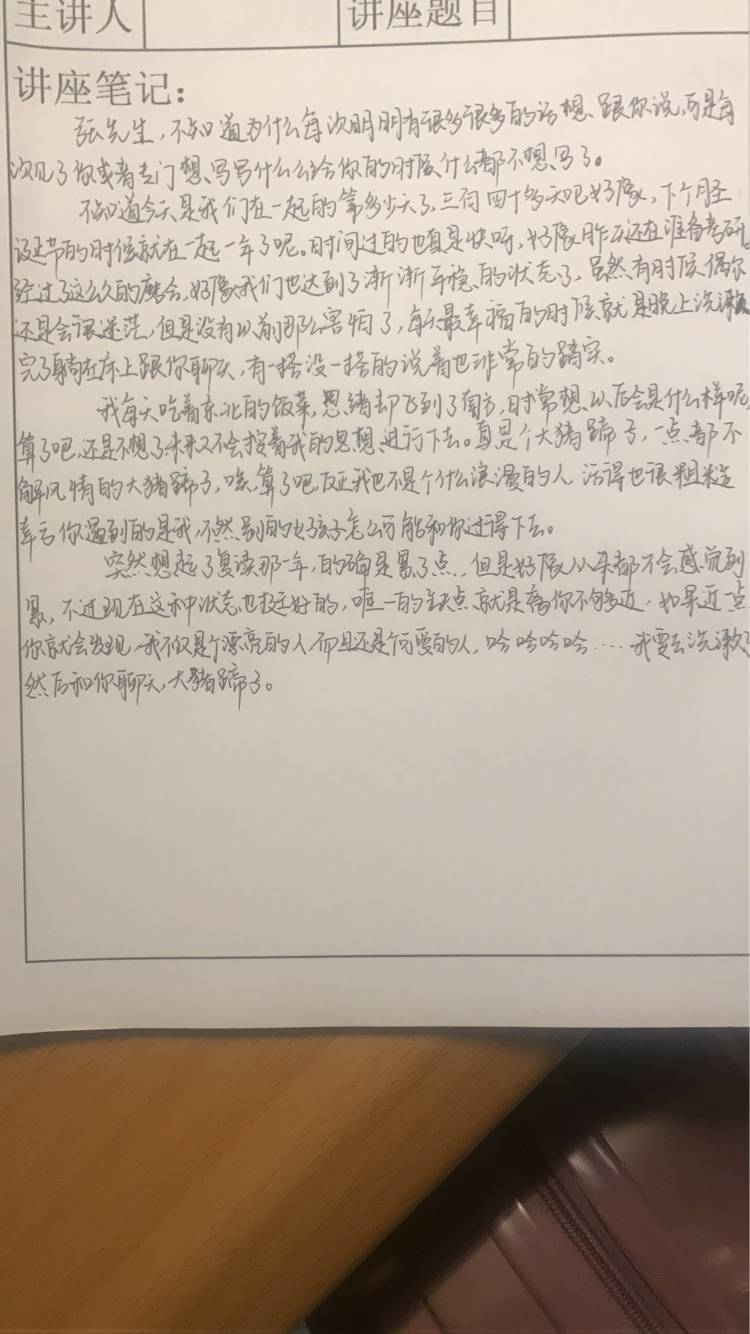 主讲人 讲座题目
讲座笔记：
张先生，不知道为什么每次明明有很多很多的话想跟你说，可是每
次见了你或者专门想写写什么给你的时候什么都不想写了。
不知道今天是我们在一起的第多少天了，三百四十多天吧好像，下个月圣
诞节的时候就在一起一年了呢。时间过的也真是快呀，好像昨天还在准备考研。
经过了这么久的磨合，好像我们也达到了渐渐平稳的状态了，虽然有时候偶尔
还是会很迷茫，但是没有以前那么害怕了，每天最幸福的时候就是晚上洗漱
完了躺在床上跟你聊天，有一搭没一搭的说着也非常的踏实。
我每天吃着东北的饭菜，思绪却飞到了南方，时常想以后会是什么样呢，
算了吧，还是不想了未来又不会按着我的思想进行下去。真是个大猪蹄子，一点都不
解风情的大猪蹄子，唉，算了吧，反正我也不是个什么浪漫的人，活得也很粗糙
幸亏你遇到的是我，不然别的女孩子怎么可能和你过得下去。
突然想起了复读那一年，的确是累了点，但是好像从来都不会感觉到
累，不过现在这种状态也挺好的，唯一的缺点就是离你不够近，如果近一点
你就会发现，我不仅是个漂亮的人，而且还是个可爱的人，哈哈哈哈……我要去洗漱了
然后和你聊天，大猪蹄子。